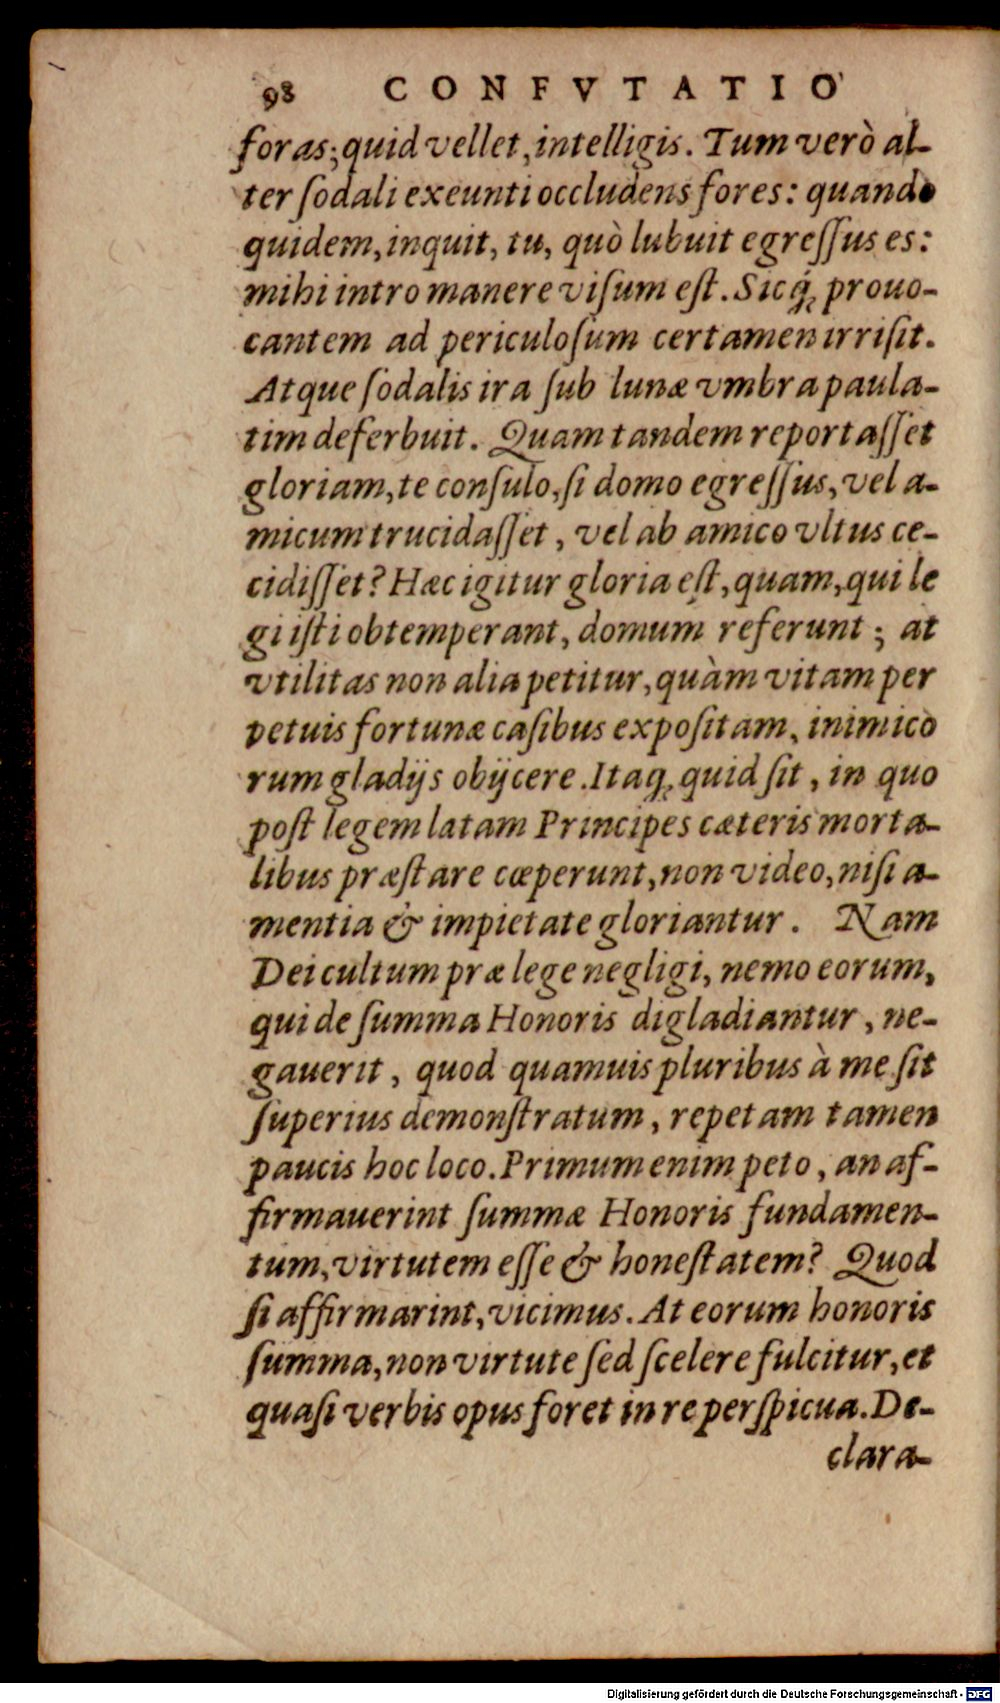 98 CONFVTATIO
foras; quid vellet, intelligis. Tum verò al-
ter ſodali exeunti occludens fores: quando
quidem, inquit, tu, quò lubuit egreſſus es:
mihi intro manere viſum eſt. Sicq́; prouo-
cantem ad periculoſum certamen irriſit.
Atque ſodalis ira ſub lunæ vmbra paula-
tim deferbuit. Quam tandem reportaſſet
gloriam, te conſulo, ſi domo egreſſus, vel a-
micum trucidaſſet, vel ab amico vltus ce-
cidiſſet? Hæc igitur gloria eſt, quam, qui le
gi iſti obtemperant, domum referunt; at
vtilitas non alia petitur, quàm vitam per
petuis fortunæ caſibus expoſitam, inimico
rum gladijs obijcere. Itaq; quid ſit, in quo
poſt legem latam Principes cæteris morta-
libus præſtare cœperunt, non video, niſi a-
mentia & impietate gloriantur. Nam
Dei cultum præ lege negligi, nemo eorum,
qui de ſumma Honoris digladiantur, ne-
gauerit, quod quamuis pluribus à me ſit
ſuperius demonſtratum, repetam tamen
paucis hoc loco. Primum enim peto, an af-
firmauerint ſummæ Honoris fundamen-
tum, virtutem eſſe & honeſtatem? Quod
ſi affirmarint, vicimus. At eorum honoris
ſumma, non virtute ſed ſcelere fulcitur, et
quaſi verbis opus foret in re perſpicua. De-
clara-
Digitalisierung gefördert durch die Deutsche Forschungsgemeinschaft - DFG